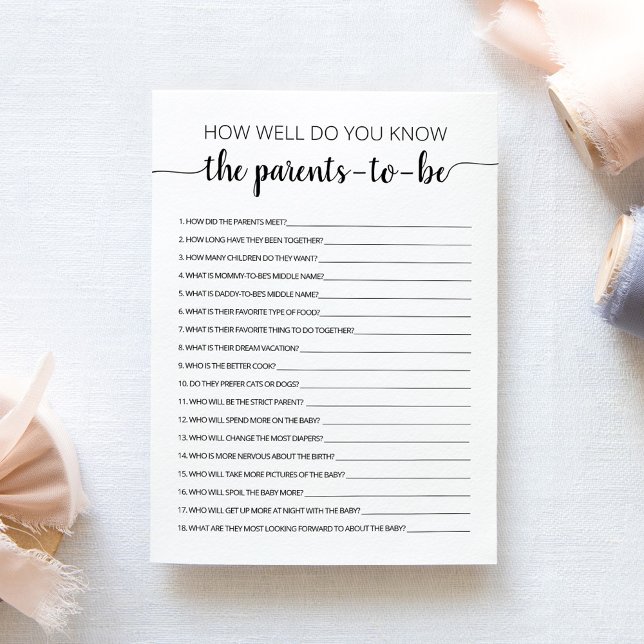 HOW WELL DO YOU KNOW
the parents-to-be
1. HOW DID THE PARENTS MEET?
2. HOW LONG HAVE THEY BEEN TOGETHER?
3. HOW MANY CHILDREN DO THEY WANT?
4. WHAT IS MOMMY-TO-BE'S MIDDLE NAME?
5. WHAT IS DADDY-TO-BE'S MIDDLE NAME?
6. WHAT IS THEIR FAVORITE TYPE OF FOOD?
7. WHAT IS THEIR FAVORITE THING TO DO TOGETHER?
8. WHAT IS THEIR DREAM VACATION?
9. WHO IS THE BETTER COOK?
10. DO THEY PREFER CATS OR DOGS?
11. WHO WILL BE THE STRICT PARENT?
12. WHO WILL SPEND MORE ON THE BABY?
13. WHO WILL CHANGE THE MOST DIAPERS?
14. WHO IS MORE NERVOUS ABOUT THE BIRTH?
15. WHO WILL TAKE MORE PICTURES OF THE BABY?
16. WHO WILL SPOIL THE BABY MORE?
17. WHO WILL GET UP MORE AT NIGHT WITH THE BABY?
18. WHAT ARE THEY MOST LOOKING FORWARD TO ABOUT THE BABY?